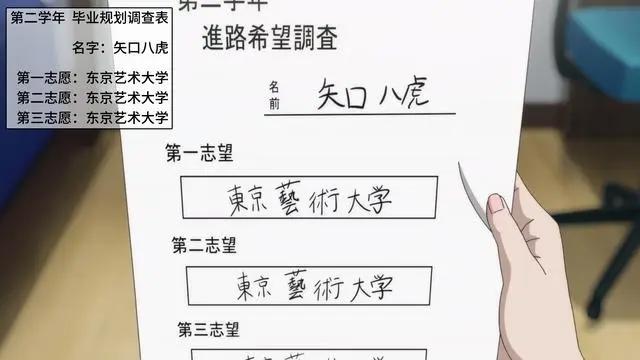 第二学年 毕业规划调查表
名字：矢口八虎
第一志愿：东京艺术大学
第二志愿：东京艺术大学
第三志愿：东京艺术大学
第二学年
進路希望調査
名前
矢口八虎
第一志望
東京藝術大学
第二志望
東京藝術大学
第三志望